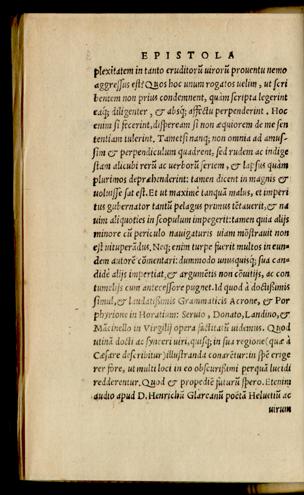 EPISTOLA
plexitatem in tanto eruditorũ uirorũ prouentu nemo
aggressus est? Quos hoc unum rogatos uelim, ut scri
bentem non prius condemnent, quàm scripta legerint
eaq́; diligenter, & absq́; affectu perpenderint. Hoc
enim si fecerint, dispeream si non æquiorem de me sen
tentiam tulerint. Tametsi nanq; non omnia ad amus-
sim & perpendiculum quadrent, sed rudem ac indige
stam alicubi rerũ ac uerborũ seriem, & lapsus quàm
plurimos depræhenderint: tamen dicent in magnis &
uoluisse sat est. Et ut maximè tanquã malus, et imperi
tus gubernator tantũ pelagus primus tẽtauerit, & na
uim aliquoties in scopulum impegerit: tamen quia alijs
minore cũ periculo nauigaturis uiam mõstrauit non
est uituperãdus. Neq; enim turpe fuerit multos in eun-
dem autorẽ cõmentari: dummodo unusquisq; sua can-
didè alijs impertiat, & argumẽtis non cõuitijs, ac con
tumelijs cum antecessore pugnet. Id quod à doctissimis
simul, & laudatissimis Grammaticis Acrone, & Por
phyrione in Horatium: Seruio, Donato, Landino, &
Mãcinello in Virgilij opera factitatũ uidemus. Quod
utinã docti ac synceri uiri, quisq; in sua regione (quæ à
Cæsare describitur) illustranda conarẽtur: in spẽ erige
rer fore, ut multi loci in eo obscurissimi perquã lucidi
redderentur. Quod & propediẽ futurũ spero. Etenim
audio apud D. Henrichũ Glareanũ poëtã Heluetiũ ac
uirum